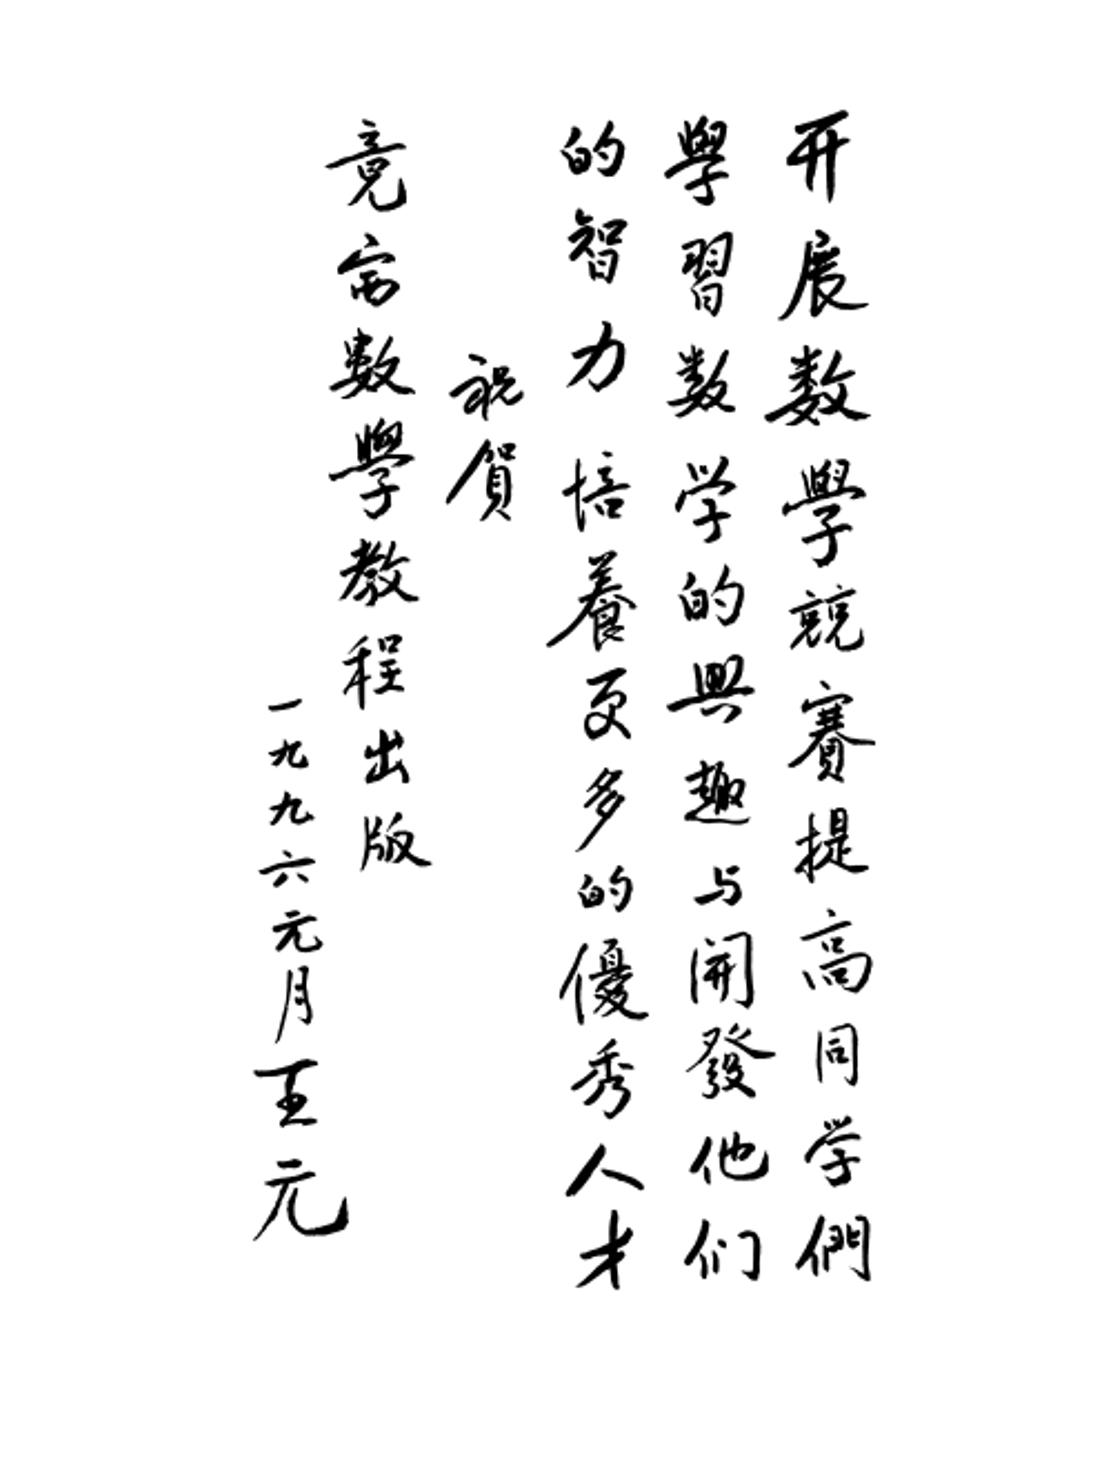 开展数學競賽提高同学們
學習数学的興趣与開發他们
的智力培養更多的優秀人才
祝賀
竞赛数學教程出版
一九九六元月王元